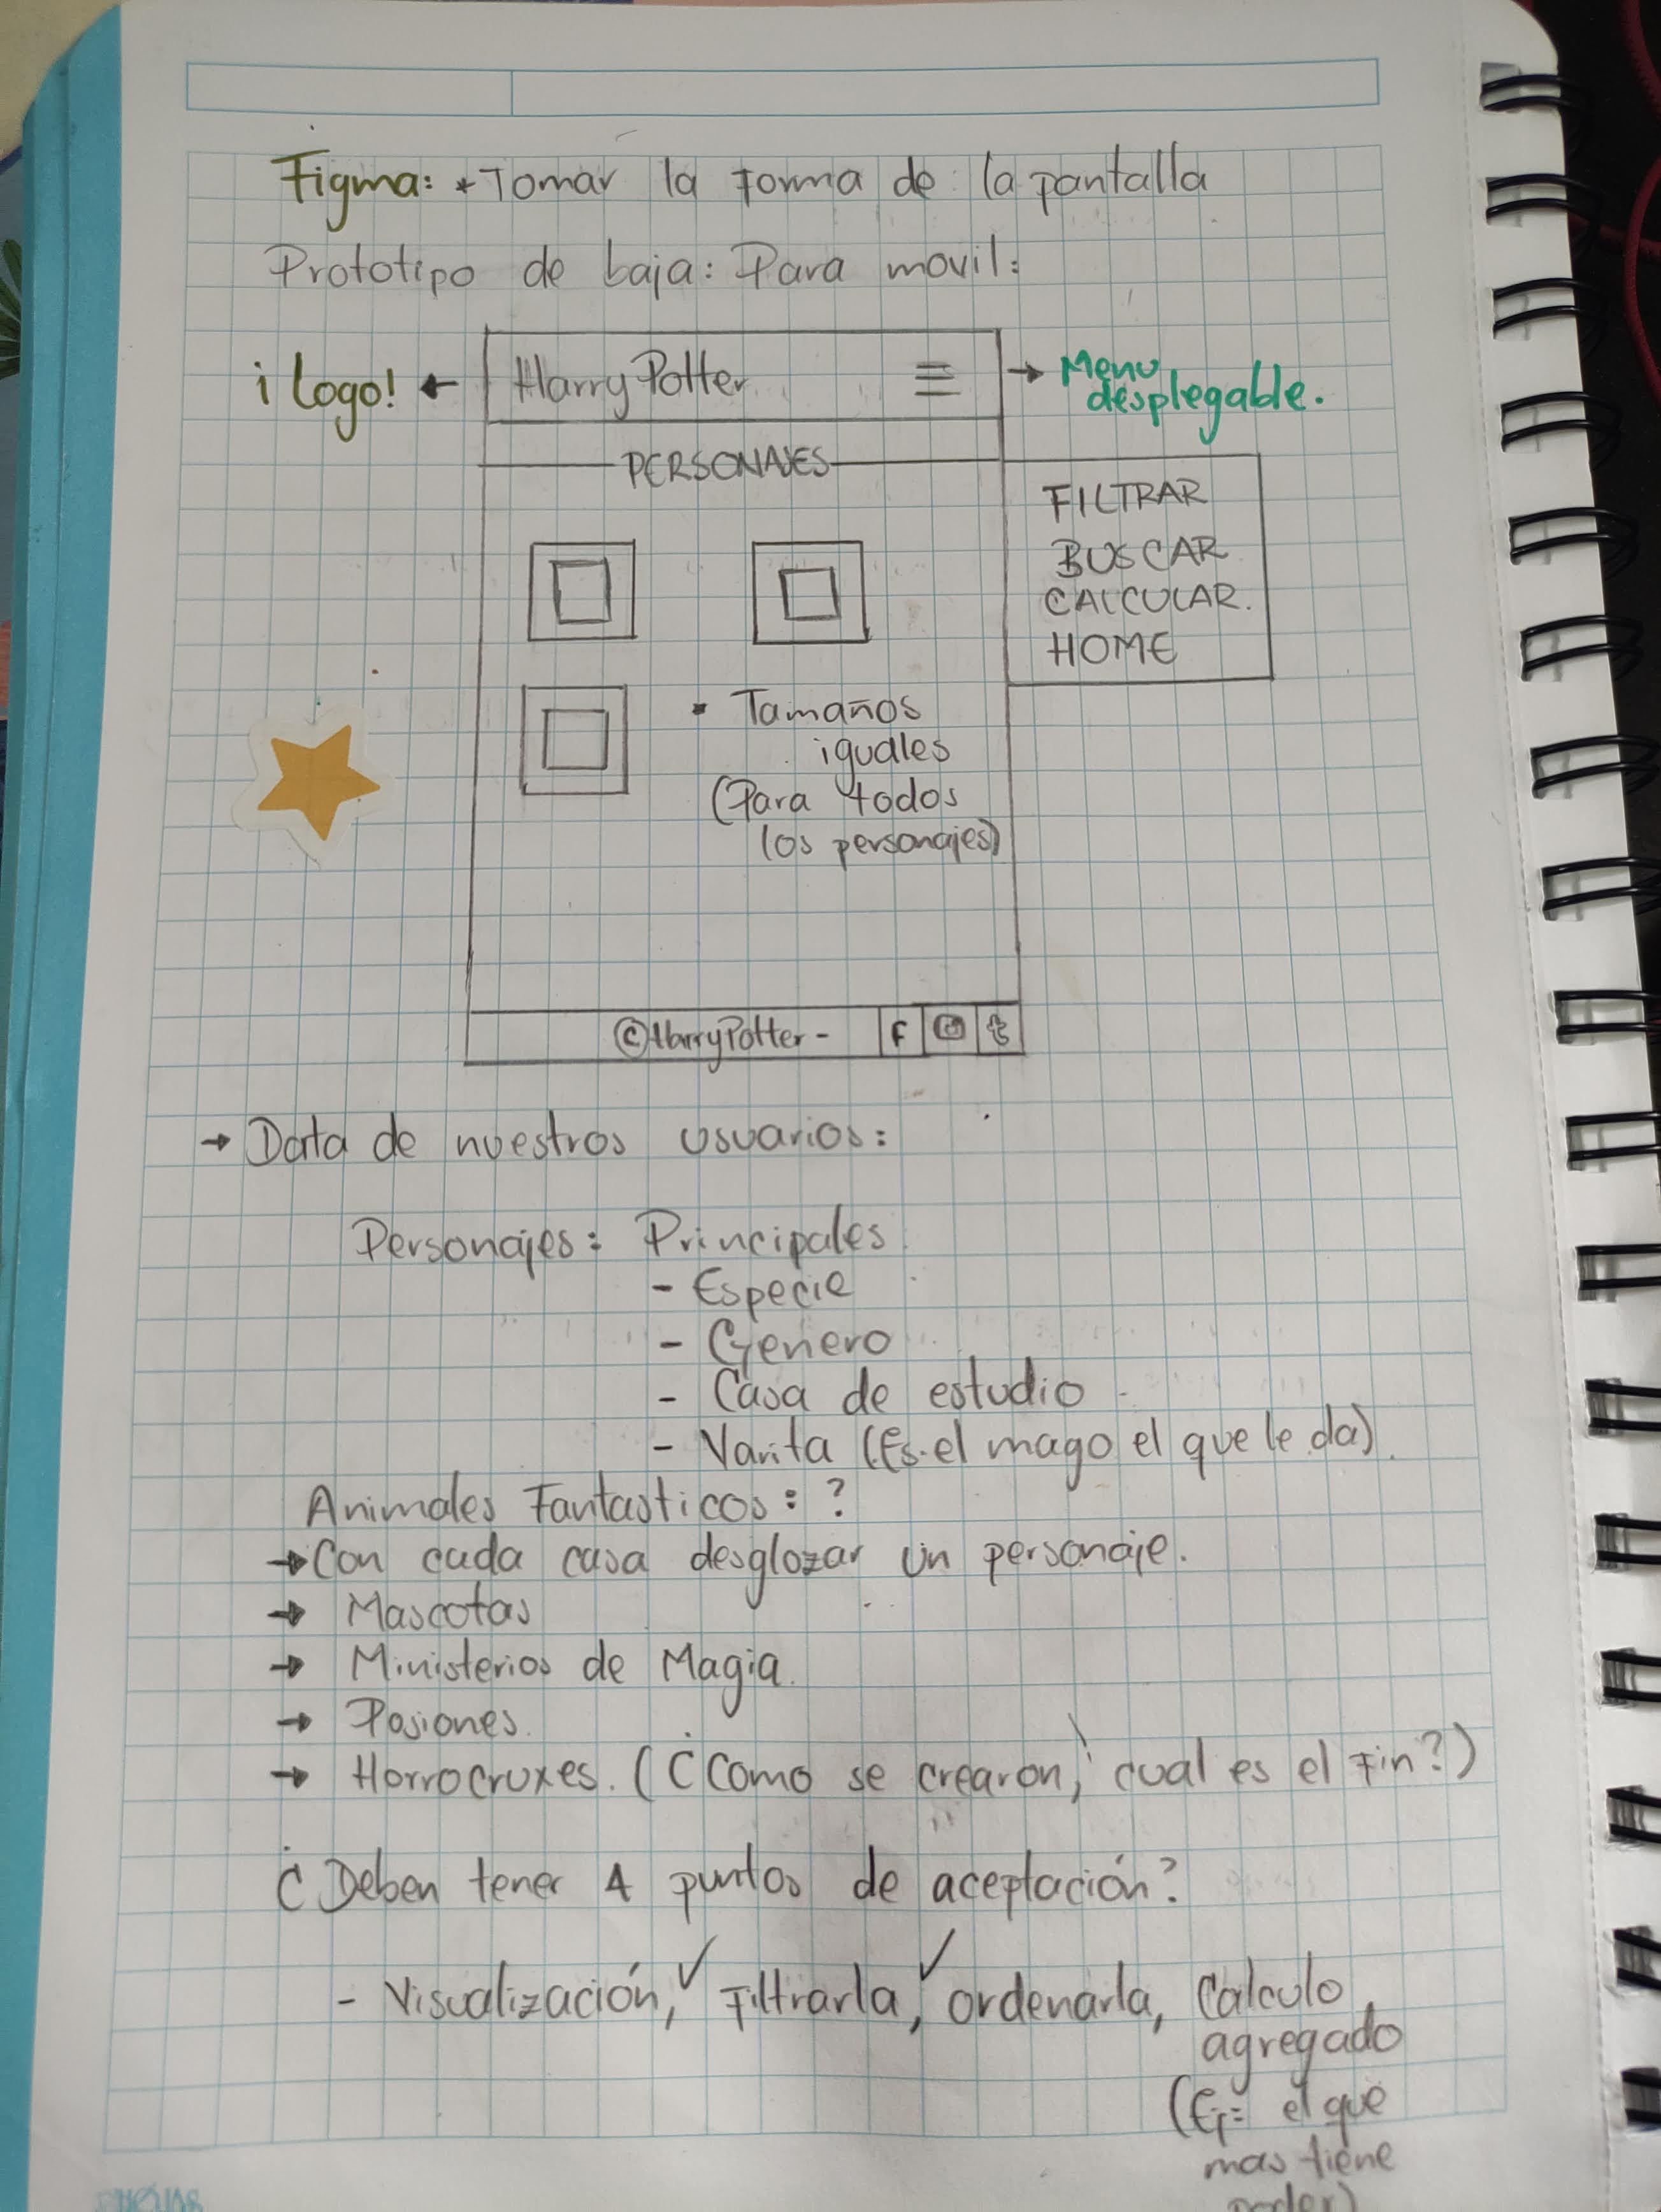 Figma: *Tomar la forma de la pantalla
Prototipo de baja: Para movil:
¡Logo! ← Harry Potter ☰ → Menu
desplegable.
PERSONAJES
FILTRAR
BUSCAR
CALCULAR.
HOME
• Tamaños
iguales
(Para todos
los personajes)
©HarryPotter- F
→ Data de nuestros usuarios:
Personajes: Principales
- Especie
- Genero
- Casa de estudio
- Varita (Es el mago el que le da).
Animales Fantasticos: ?
→ Con cada casa desglozar un personaje.
→ Mascotas
→ Ministerios de Magia.
→ Posiones.
→ Horrocruxes. (¿Como se crearon, cual es el fin?)
¿Deben tener 4 puntos de aceptación?
- Visualización, ✓ Filtrarla, ✓ ordenarla, Calculo
agregado
(Ej= el que
mas tiene
poder)